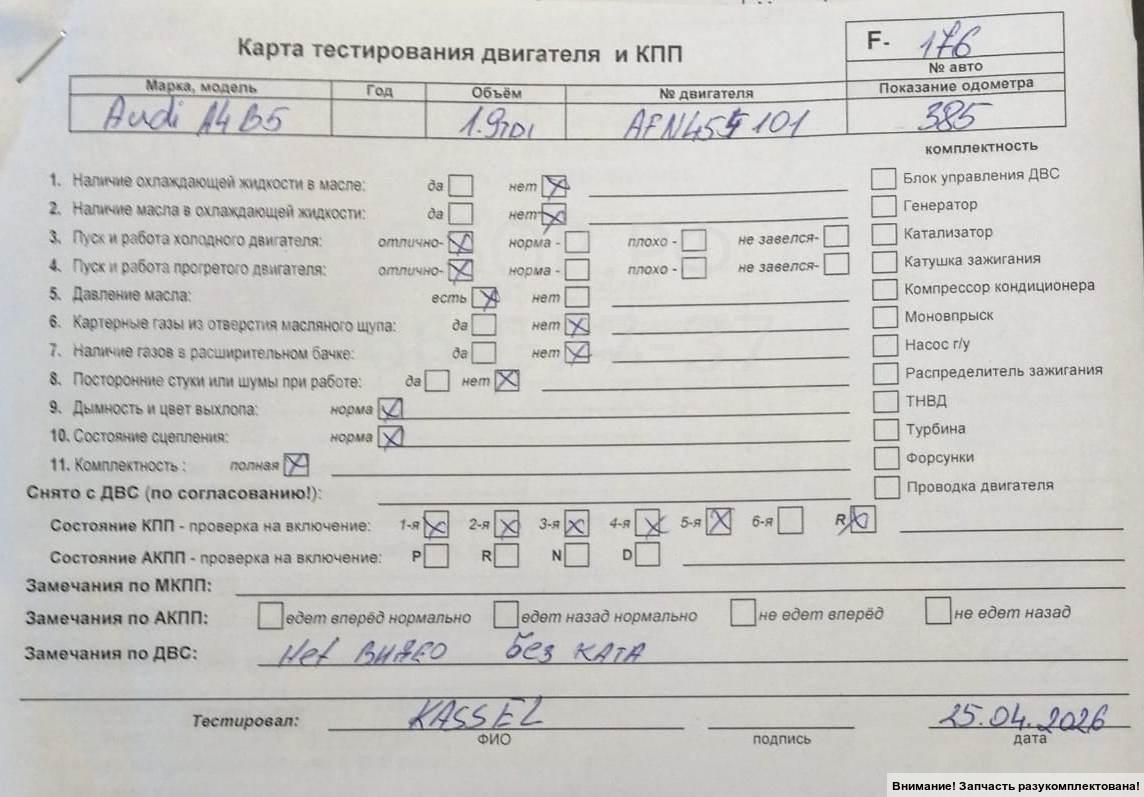 Карта тестирования двигателя и КПП
F- 176
№ авто
Марка, модель Год Объём № двигателя Показание одометра
Audi A4 B5 1.9TDI AFN455101 385
комплектность
1. Наличие охлаждающей жидкости в масле: да нет
Блок управления ДВС
2. Наличие масла в охлаждающей жидкости: да нет
Генератор
3. Пуск и работа холодного двигателя: отлично- норма - плохо - не завелся-
Катализатор
4. Пуск и работа прогретого двигателя: отлично- норма - плохо - не завелся-
Катушка зажигания
5. Давление масла: есть нет
Компрессор кондиционера
6. Картерные газы из отверстия масляного щупа: да нет
Моновпрыск
7. Наличие газов в расширительном бачке: да нет
Насос г/у
8. Посторонние стуки или шумы при работе: да нет
Распределитель зажигания
9. Дымность и цвет выхлопа: норма
ТНВД
10. Состояние сцепления: норма
Турбина
11. Комплектность : полная
Форсунки
Снято с ДВС (по согласованию!):
Проводка двигателя
Состояние КПП - проверка на включение: 1-я 2-я 3-я 4-я 5-я 6-я R
Состояние АКПП - проверка на включение: P R N D
Замечания по МКПП:
Замечания по АКПП: едет вперёд нормально едет назад нормально не едет вперёд не едет назад
Замечания по ДВС: Нет видео Без ката
Тестировал: KASSEL 25.04.2026
ФИО подпись дата
Внимание! Запчасть разукомплектована!